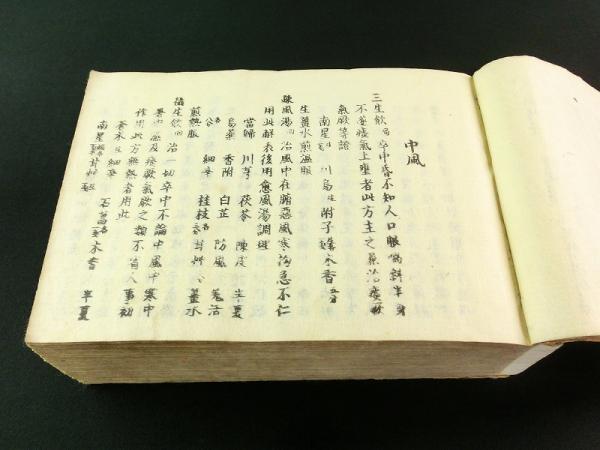 中風
三生飲 卒中昏不知人口眼喎斜半身
不遂痰氣上壅者此方主之兼治痰厥
氣厥等證
南星 川烏 附子 木香
生薑水煎温服
疎風湯 治風中在腑惡風寒拘急不仁
用此解表後用愈風湯調理
當歸 川芎 茯苓 陳皮 半夏
烏藥 香附 白芷 防風 羌活
細辛 桂枝 甘艸 薑水
煎熱服
攝生飲 治一切卒中不論中風中寒中
暑中濕及痰厥氣厥之類不省人事初
作用此方無熱者用此
南星 半夏 木香
蒼朮 細辛 石菖